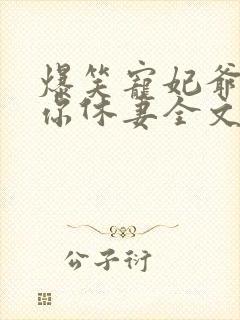 爆笑宠妃爷
你休妻全文
公子衍